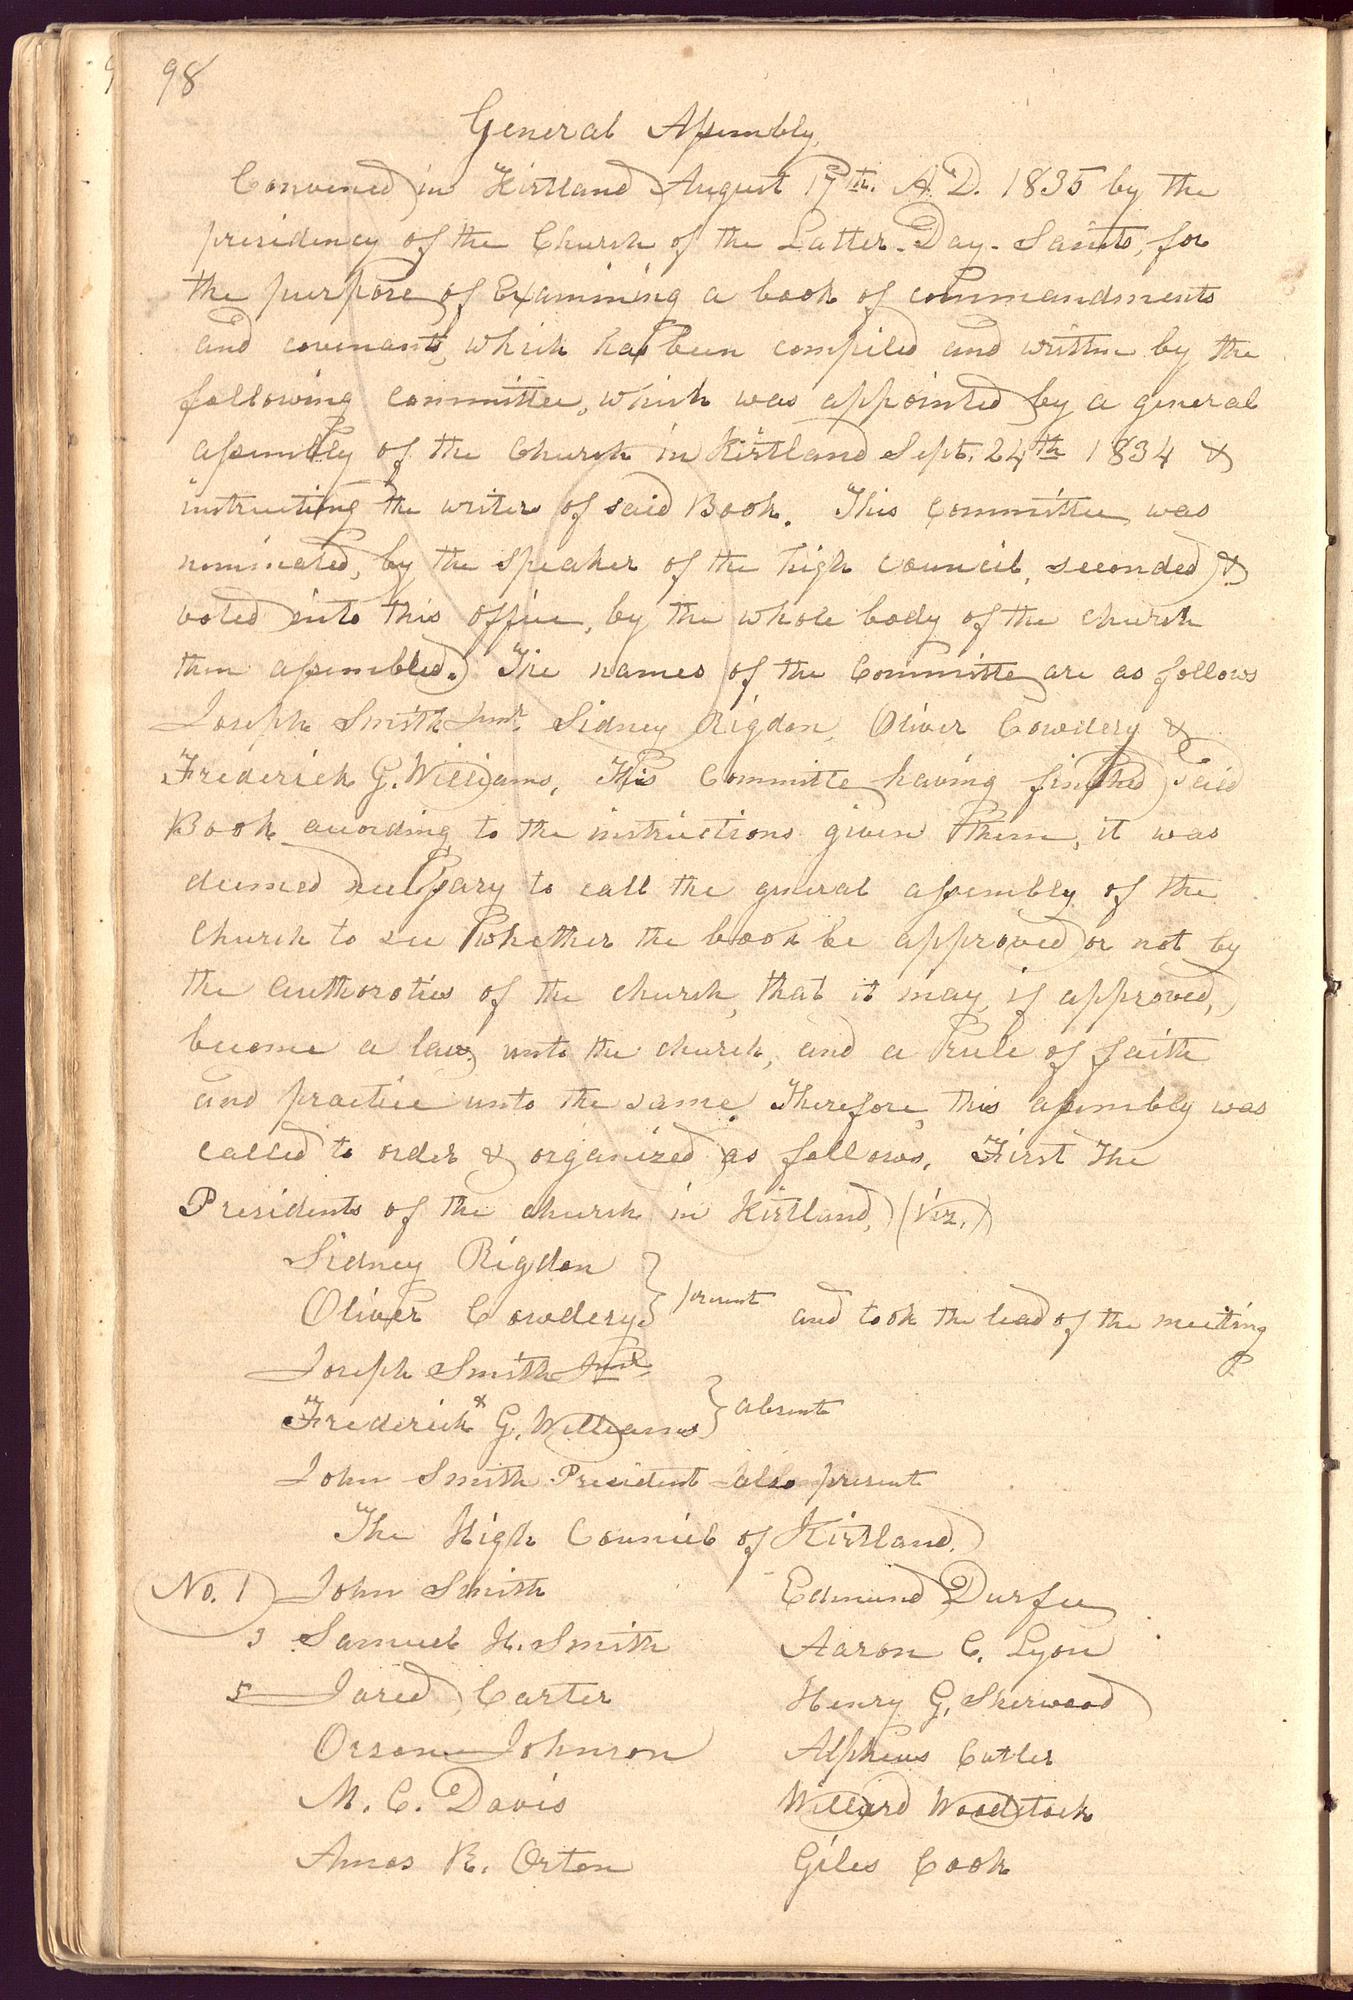 98
General Assembly,
Convened in Kirtland August 17th. A.D. 1835 by the
presidency of the Church of the Latter-Day-Saints, for
the purpose of Examining a book of commandments
and covenants, which has been compiled and written by the
following committee, which was appointed by a general
assembly of the Church in Kirtland Sept. 24th 1834 &
instructing the writers of said Book. This Committee was
nominated, by the speaker of the high council, seconded &
voted into this office, by the whole body of the church
then assembled. The names of the Committe are as follows
Joseph Smith Junr. Sidney Rigdon, Oliver Cowdery &
Frederick G. Williams, This Committe having finished said
Book according to the instructions given them, it was
deemed necessary to call the general assembly of the
church to see whether the book be approved or not by
the authoroties of the church, that it may, if approved,
become a law, unto the church, and a rule of faith
and practice unto the same. Therefore, this assembly was
called to order & organized as follows. First The
Presidents of the church in Kirtland, (Viz.)
Sidney Rigdon
Oliver Cowdery. } present and took the lead of the meeting
Joseph Smith Junr.
& Frederick G. Williams } absent
John Smith President also present
The High Council of Kirtland.
No. 1 John Smith Edmund Durfee
3 Samuel H. Smith Aaron C. Lyon
5 Jared Carter Henry G. Sherwood
Orson Johnson Alpheus Cutler
M. C. Davis Willard Woodstock
Amos R. Orton Giles Cook